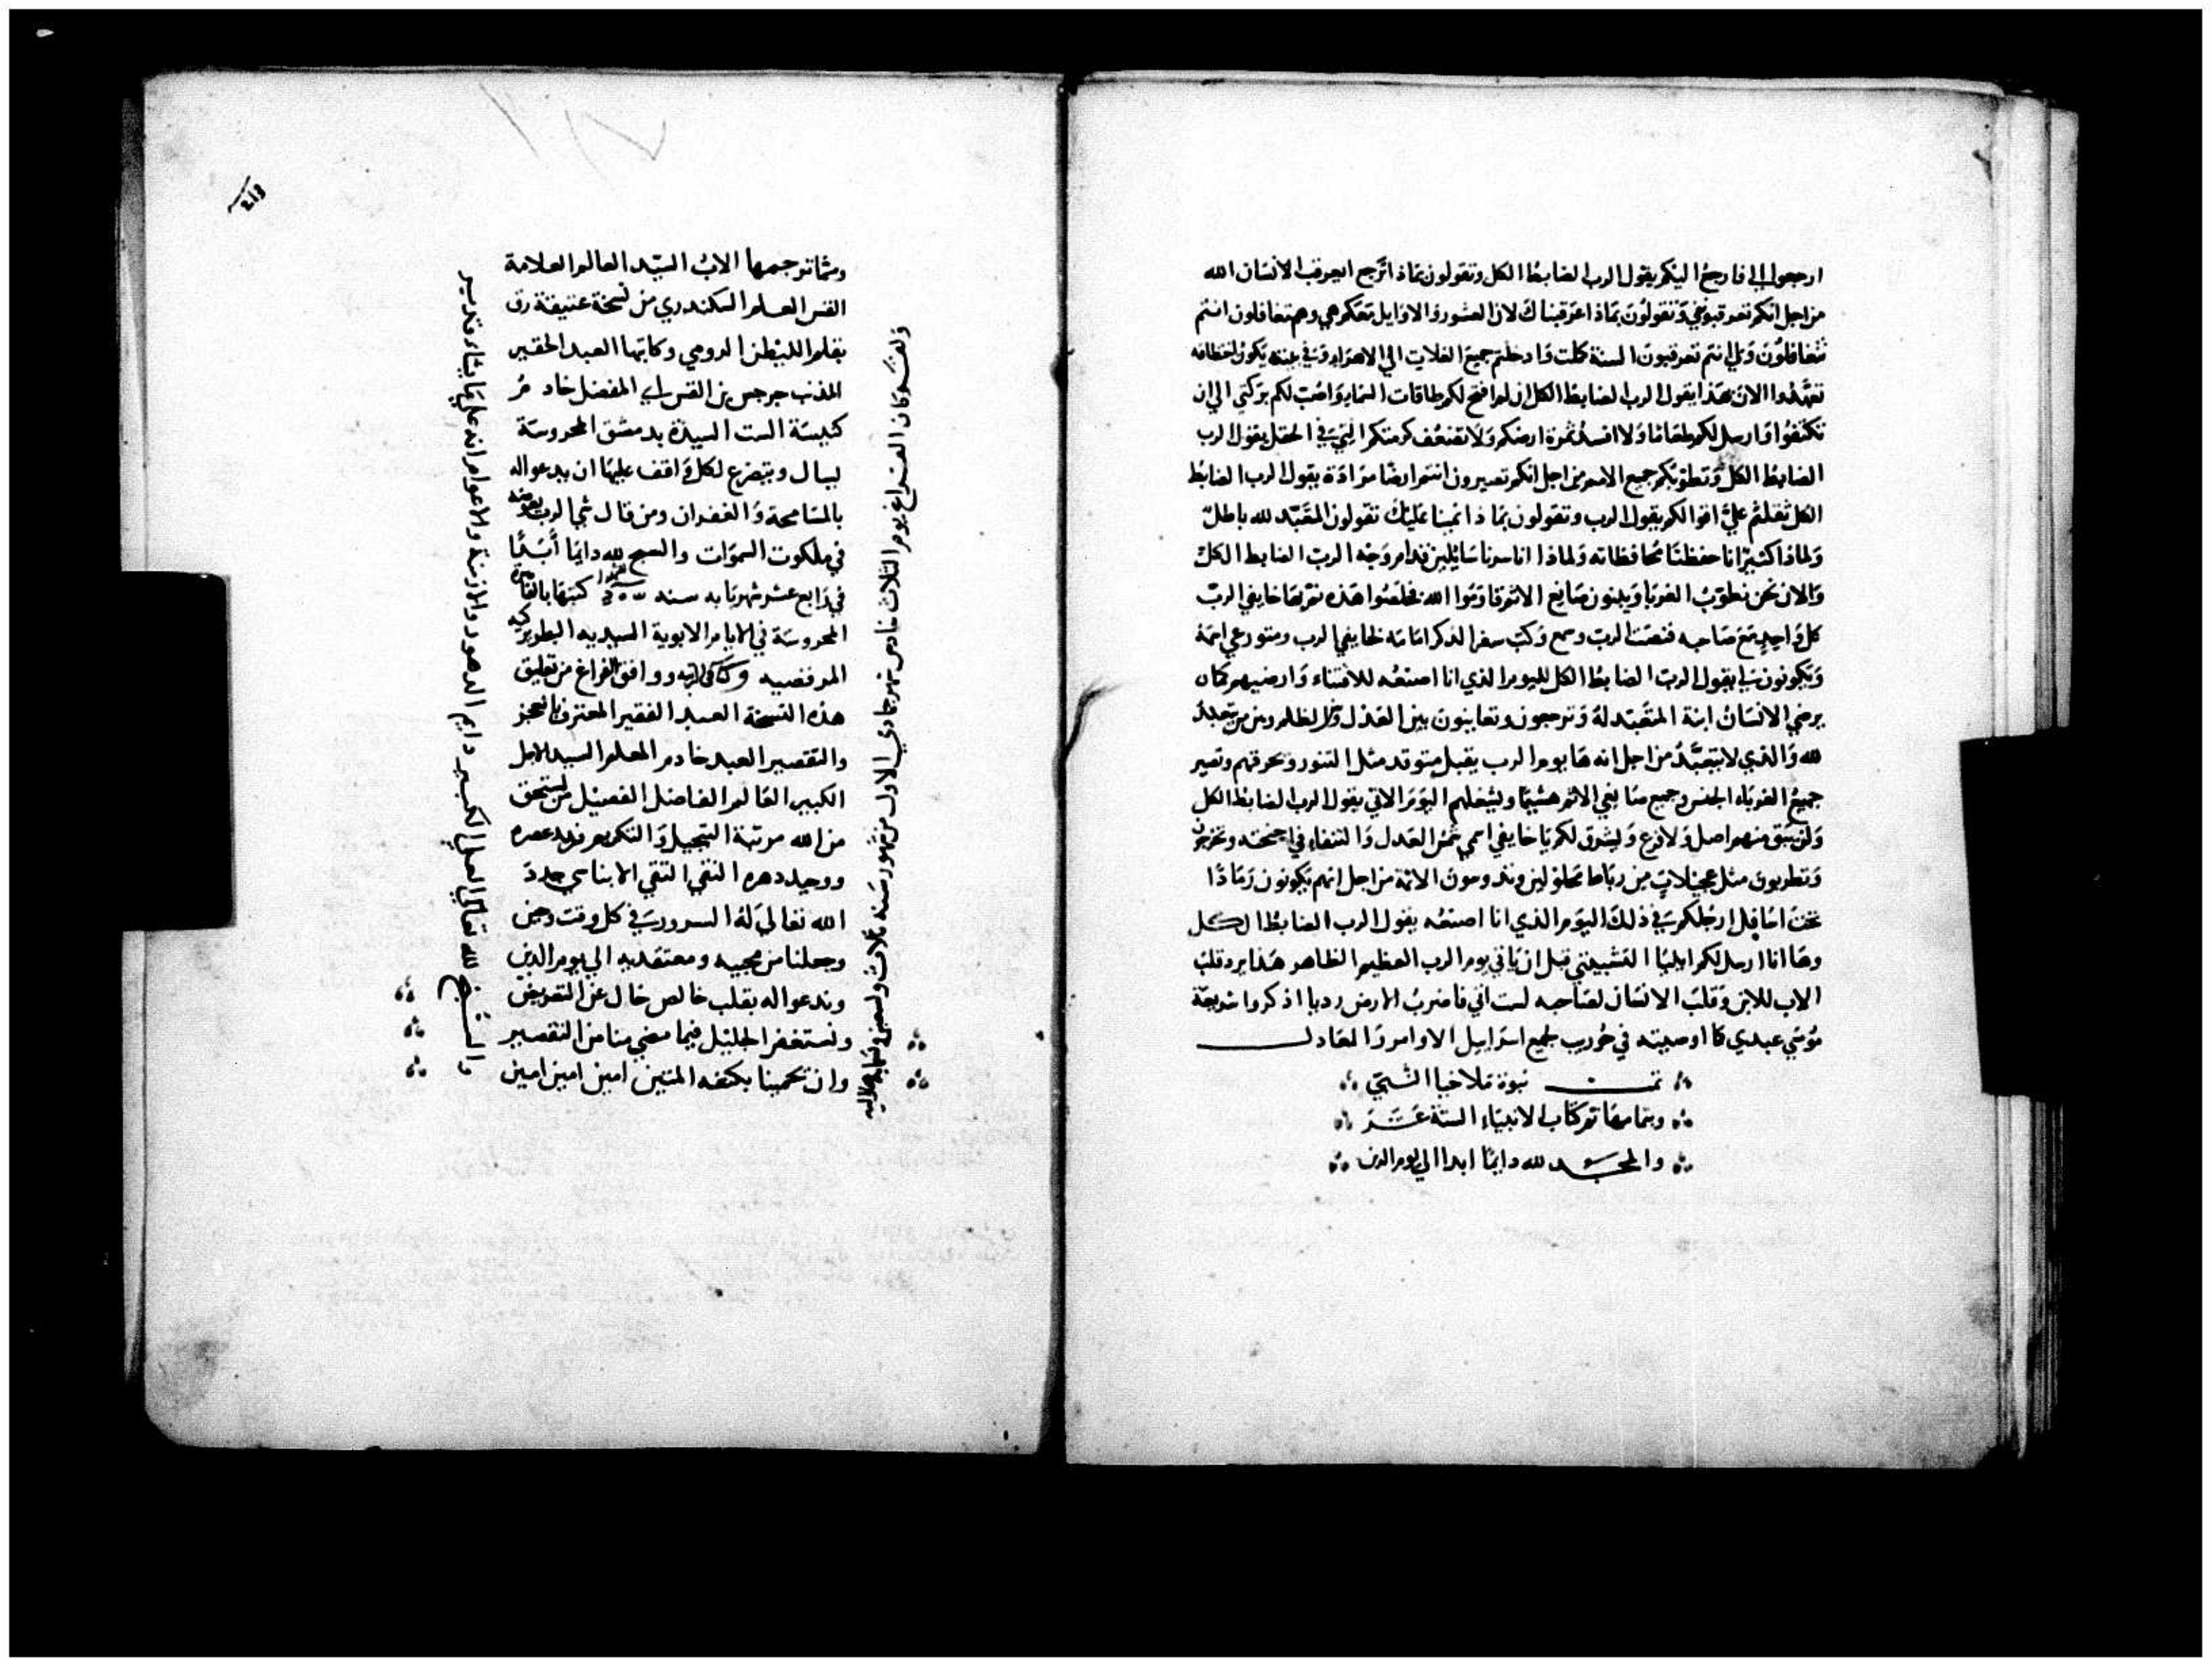 ارجعوا الي فارجع اليكم يقول الرب الضابط الكل وتقولون بماذا نرجع ايعرقب الانسان الله
من اجل انكم تعرقبونني وتقولون بماذا عرقبناك لان العشور والاوايل معكم هي وهم تغافلون انتم
تتغافلون وبي انتم تعرقبون السنة كملت وادخلتم جميع الغلات الي الاهراء وفي بيته يكون
تعهدوا الان هذا يقول الرب الضابط الكل ان لم افتح لكم طاقات السماء واصب لكم بركتي الي ان
تكتفوا وارسل لكم طعاما ولا افسد ثمرة ارضكم ولا تضعف كرمتكم التي في الحقل يقول الرب
الضابط الكل وتطوبكم جميع الامم من اجل انكم تصيرون انتم ارضا مرادة يقول الرب الضابط
الكل ثقلتم علي اقوالكم يقول الرب وتقولون بماذا نمينا عليك تقولون المتعبد لله باطل
ولماذا كثيرا انا حفظنا محافظاته ولماذا انا سرنا سايلين قدام وجه الرب الضابط الكل
والان نحن نطوب الغربا ويبنون صانع الاثم قاوموا الله فخلصوا هذه تفوضها خايفي الرب
كل واحد مع صاحبه فنصت الرب وسمع وكتب سفر الذكر امامه لخايفي الرب ومتورعي اسمه
ويكونون لي يقول الرب الضابط الكل لليوم الذي انا اصنعه للاقتناء وارضيهم كما
يرضي الانسان ابنه المتعبد له وترجعون وتعاينون بين العدل والظلم وبين من يتعبد
لله والذي لا يتعبد من اجل انه ها يوم الرب يقبل متوقد مثل التنور وتحرقهم وتصير
جميع الغرباء الجنس وجميع صانعي الاثم هشيما ويشعلهم اليوم الاتي يقول الرب الضابط الكل
ولن يبق منهم اصل ولا فرع ويشرق لكم يا خايفي اسمي شمس العدل والشفاء في اجنحته وتخرجون
وتطربون مثل عجيلات من رباط محلولين وتدوسون الاثمة من اجل انهم يكونون رمادا
تحت اسافل ارجلكم في ذلك اليوم الذي انا اصنعه يقول الرب الضابط الكل
وها انا ارسل لكم ايليا التشبيتي قبل ان ياتي يوم الرب العظيم الظاهر هذا يرد قلب
الاب للابن وقلب الانسان لصاحبه لست اتي فاضرب الارض رديا اذكروا شريعة
موسي عبدي كما اوصيته في حوريب لجميع اسراييل الاوامر والمعادل
تمت نبوة ملاخيا النبي
وبتمامها تم كتاب الانبياء الستة عشر
والمجد لله دايما ابدا الي يوم الدين
ومما ترجمها الاب السيد العالم العلامة
القس العلم السكندري من نسخة عتيقة رق
بقلم الليطن الرومي وكاتبها العبد الحقير
المذنب جرجس بن القس ابي المفضل خادم
كنيسة الست السيدة بدمشق المحروسة
يسال ويتضرع لكل واقف عليها ان يدعو اله
بالمسامحة والغفران ومن قال شي الرب يعوضه
في ملكوت السموات والسبح لله دايما ابدا
في رابع عشر شهر بابه سنه كتبها بالقاهرة
المحروسة في الايام الابوية السيديه البطريركيه
المرقصيه ووافق الفراغ من تعليق
هذه النسخة العبد الفقير المعترف بالعجز
والتقصير العبد خادم المعلم السيد الاجل
الكبير العالم الفاضل الفصيل من استحق
من الله مرتبة التبجيل والتكريم فريد عصره
ووحيد دهره النقي التقي الابناسي جدد
الله تعالي له السرور في كل وقت وحين
وجعلنا من محبيه ومعتقديه الي يوم الدين
وندعو اله بقلب خالص خال عن التعريض
ونستغفر الجليل فيما مضي منا من التقصير
وان تحمينا بكنفه المتين امين امين امين
وكان الفراغ يوم الثلاث سادس شهر جمادي الاول من شهور سنه ثلاث وتسعين هلاليه
والسبح لله تعالي العلي الكبير دايم الدهور والازمنة والاعوام انه علي ما يشاء قدير